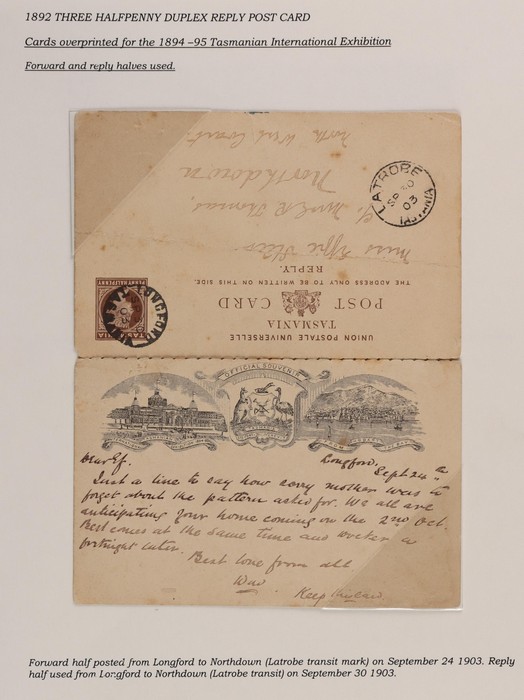 1892 THREE HALFPENNY DUPLEX REPLY POST CARD
Cards overprinted for the 1894 –95 Tasmanian International Exhibition
Forward and reply halves used.
UNION POSTALE UNIVERSELLE
TASMANIA
POST CARD
THE ADDRESS ONLY TO BE WRITTEN ON THIS SIDE.
REPLY.
Miss Effie
Thomas,
Northdown
North West Coast
LATROBE
SP 30
03
LONGFORD
TASMANIA
PENNY HALFPENNY
OFFICIAL SOUVENIR
Longford,
Sept 24th
Dear Ef.
Just a line to say how sorry mother was to
forget about the pattern asked for. We all are
anticipating your home coming on the 2nd Oct.
Best comes at the same time and a
fortnight later.
Best love from all
Keep
Forward half posted from Longford to Northdown (Latrobe transit mark) on September 24 1903. Reply
half used from Longford to Northdown (Latrobe transit) on September 30 1903.